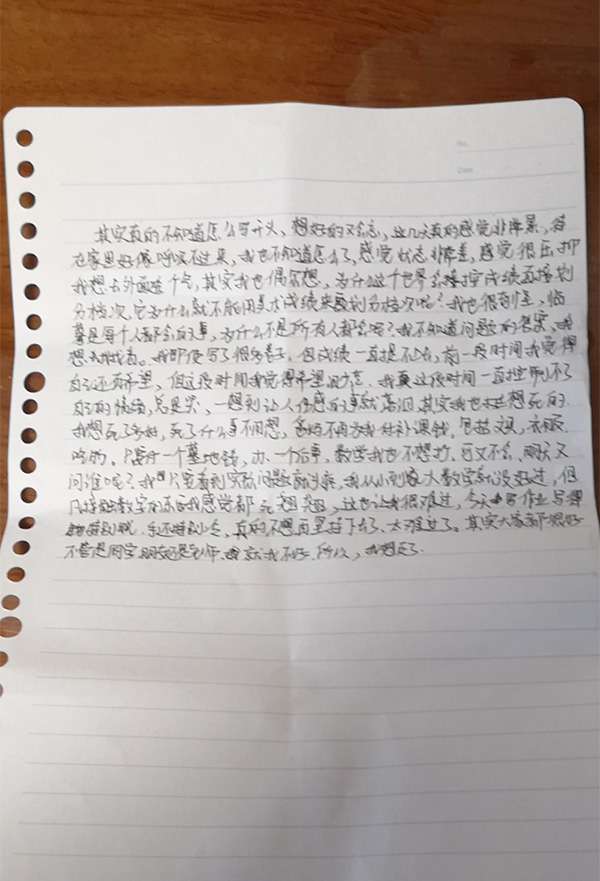 No.
Date
其实真的不知道怎么写开头，想好的又会忘，这几天真的感觉非常累，待
在家里好像呼吸不过来，我也不知道怎么了，感觉状态非常差，感觉很压抑
我想去外面透个气，其实我也偶尔想，为什么这个世界会按成绩直接划
分档次，它为什么就不能用美术成绩来划分档次呢？我也很自卑，临
是每个人都会的事，为什么不是所有人都会呢？我不知道问题的答案，我
想去找找看。我即使写了很多卷子，但成绩一直提不上，前一段时间我觉得
自己还有希望，但这段时间我觉得希望，我真这段时间一直控制不了
自己的情绪，总是哭，一想到让人伤感的事就落泪，其实我也想死的
我想死了多好，死了什么事不用想，爸妈不再为我付补课钱，包括文具，衣服
吃的。只要付一个墓地钱，办一个后事，数学我也不想打，可又不会，明天又
问谁呢？我只要看到实际问题就头疼，我从小到大数学就没好过，但
凡接触数字的东西我感觉都，这也让我很难过，今天写作业写得
特别晚，手还特别冷，真的不想再坚持下去了，太难过了。其实大家都很好
不管是同学朋友还是老师，就我不好，所以，我想走了.